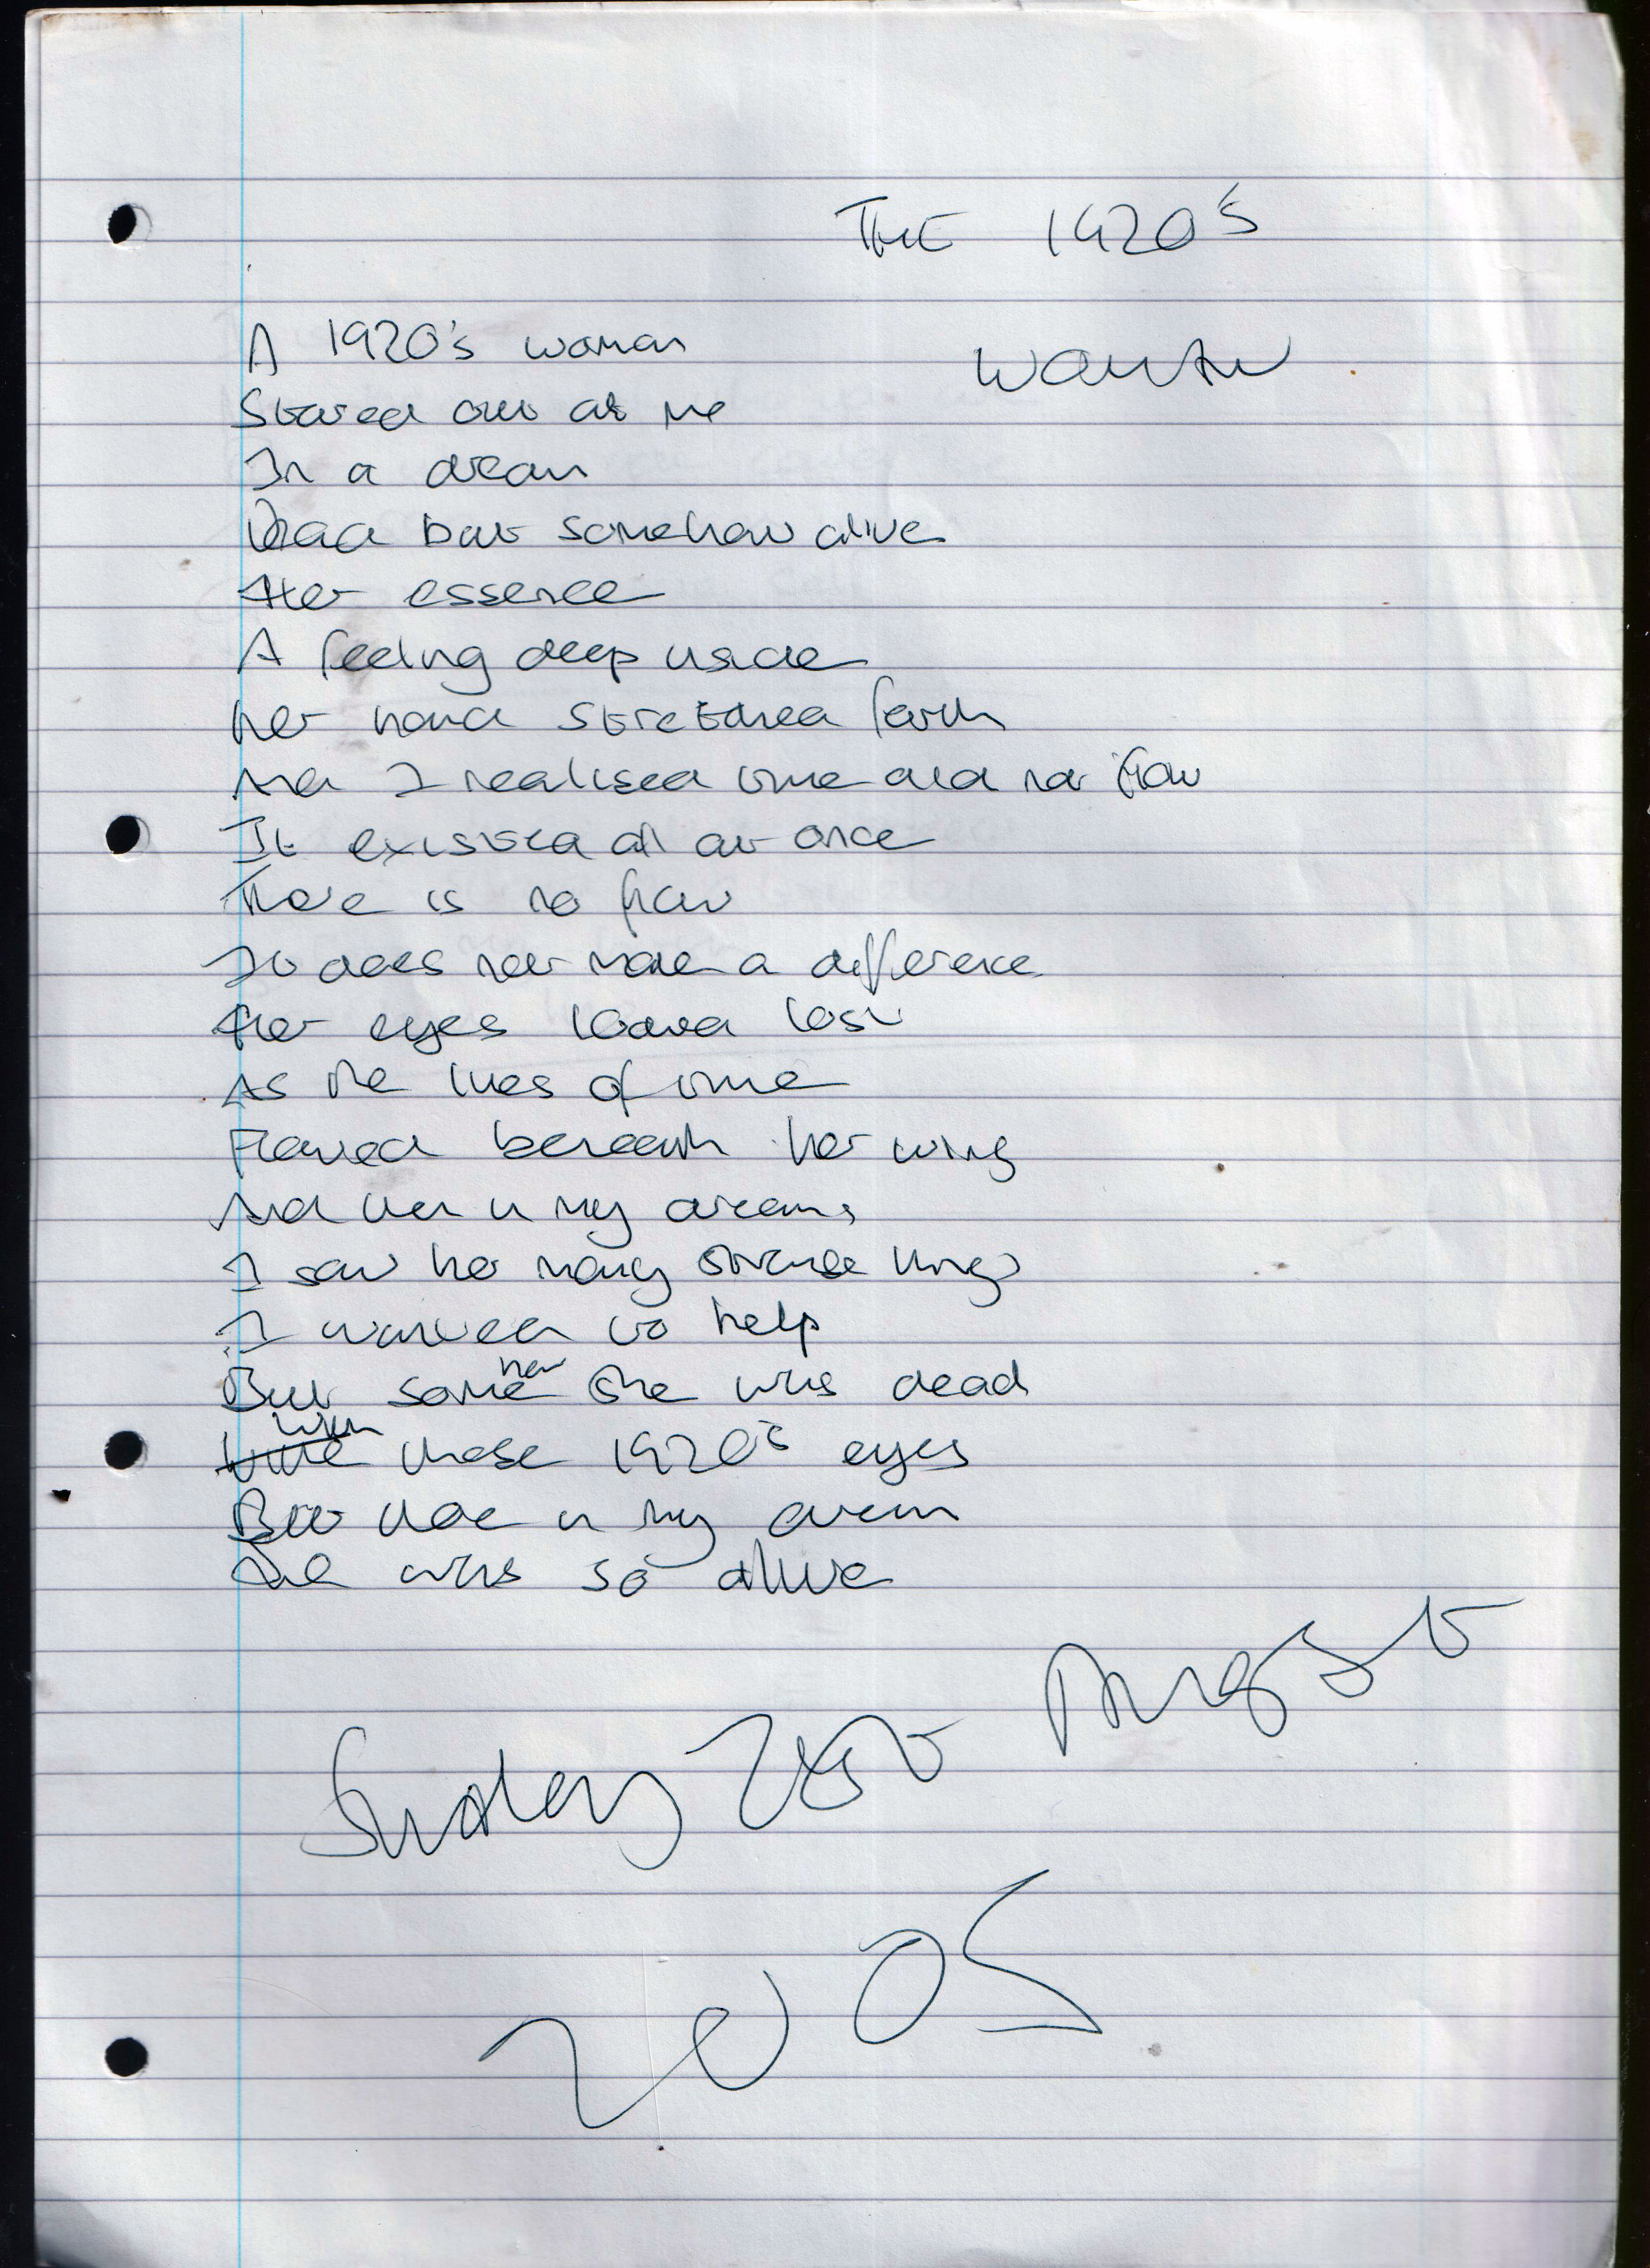 THE 1920's
WOMAN
A 1920's woman
Stared out at me
In a dream
Dead but somehow alive
Her essence
A feeling deep inside
her hand stretched forth
And I realised time did not flow
It existed all at once
There is no flow
It does not make a difference
Her eyes looked lost
As the lines of time
Flowed beneath her wing
And then in my dreams
I saw her many strange things
I wanted to help
But somehow she was dead
with those 1920's eyes
But there in my dream
She was so alive
Sunday 21st August
2005